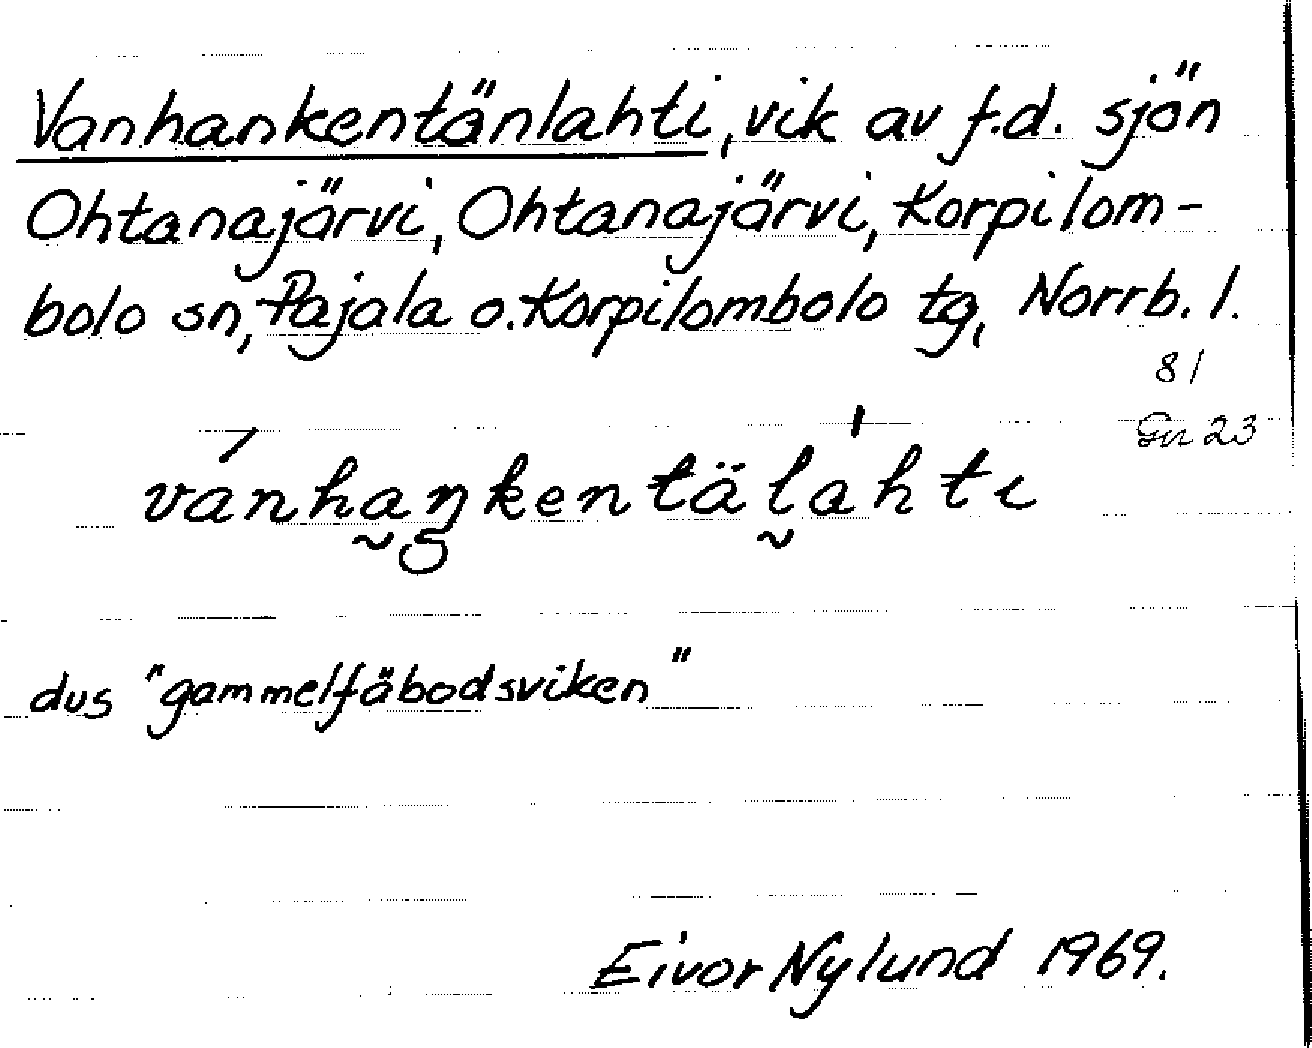 Vanhankentänlahti, vik av f.d. sjön
Ohtanajärvi, Ohtanajärvi, Korpilom-
bolo sn, Pajala o. Korpilombolo tg, Norrb. l.
81
Gn 23
vánha̰ŋkentäl̰ahti
dus "gammelfäbodsviken"
Eivor Nylund 1969.